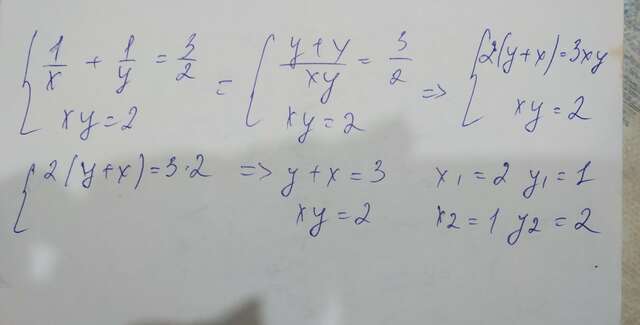 1/x + 1/y = 3/2 = (y+y)/xy = 3/2 => 2(y+x)=3xy
xy=2 xy=2 xy=2
2(y+x)=3·2 => y+x=3 x1=2 y1=1
xy=2 x2=1 y2=2